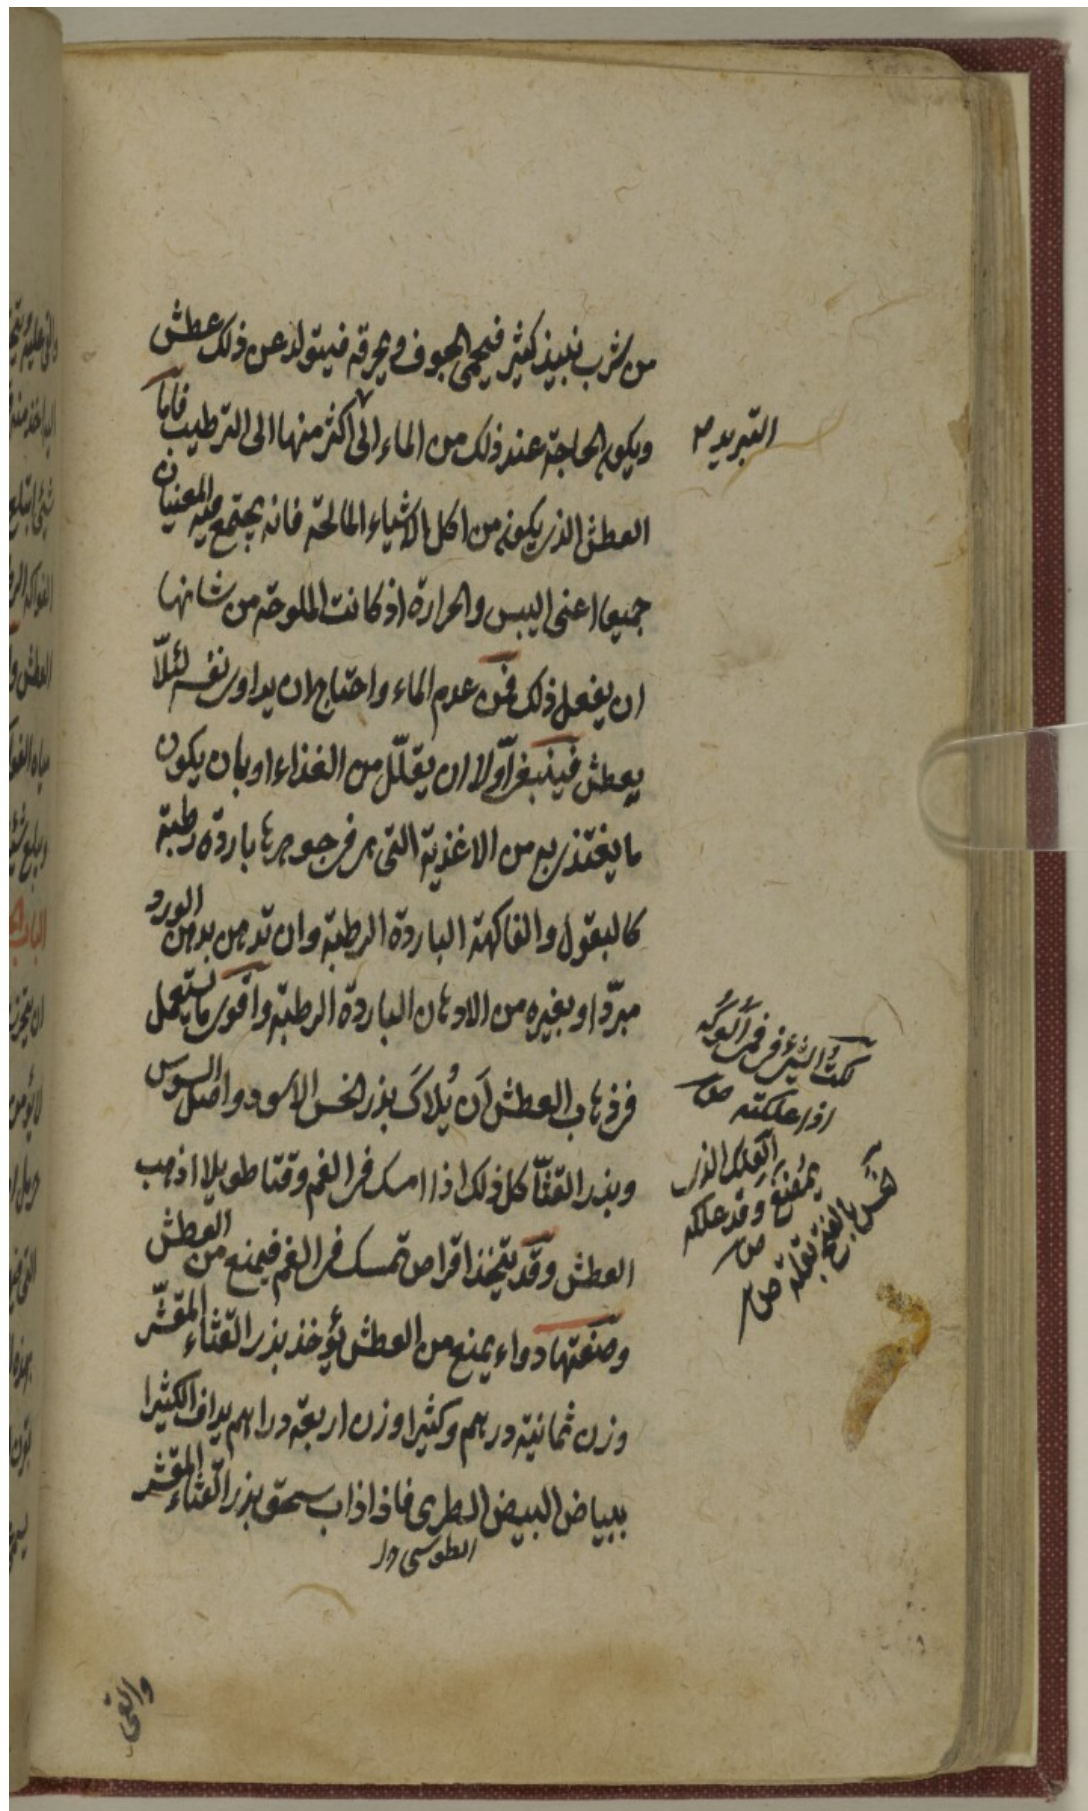 من شرب نبيذ كثير فيحمى الجوف ويحرقه فيتولد عن ذلك عطش
ويكون الحاجة عند ذلك من الماء الى اكثر منها الى الترطيب فاما
التبريد صح
العطش الذى يكون من اكل الاشياء المالحة فانه يجتمع فيه المعنيان
جميعا اعنى اليبس والحرارة اذ كانت الملوحة من شانها
ان يفعل ذلك فمن عدم الماء واحتاج ان يداوى نفسه لئلّا
يعطش فينبغى اوّلا ان يقلّل من الغذاء او بان يكون
ما يغتذى به من الاغذية التى هى فى جوهرها باردة رطبة
كالبقول والفاكهة الباردة الرطبة وان تدهن بدهن الورد
مبرّد او بغيره من الادهان الباردة الرطبة واقوى ما يستعمل
فى ذهاب العطش ان يُلاكَ بذر الخس الاسود واصل السوس
وبذر القثّا كل ذلك اذا امسك فى الفم وقتا طويلا اذهب
العطش وقد يتخذ اقراص تمسك فى الفم فيمنع من العطش
وصنعتها دواء يمنع من العطش يؤخذ بذر القثاء المقشّر
وزن ثمانية درهم وكثيرا وزن اربعة دراهم يداف الكثيرا
ببياض البيض الطرى فاذا ذاب سحق بذر القثاء المقشر
لُكتُ الشئ فى فمى اَلوكُه
اذا علكته ص
العِلك الذى
يمضغ وقد علكه
ص
بالفتح بقلة ص
والقى